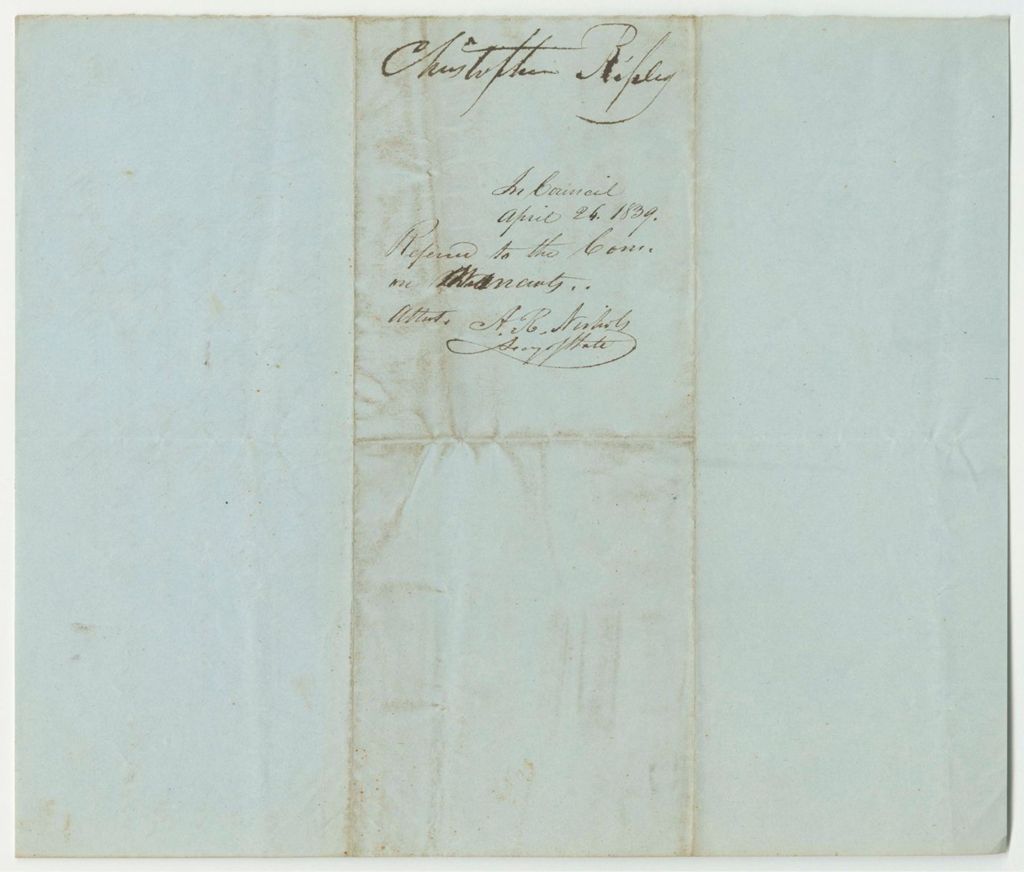 Christopher Ripley
In Council
April 26. 1839.
Referred to the Com.
on Warrants..
Attest. A. R. Nichols
Secy of State